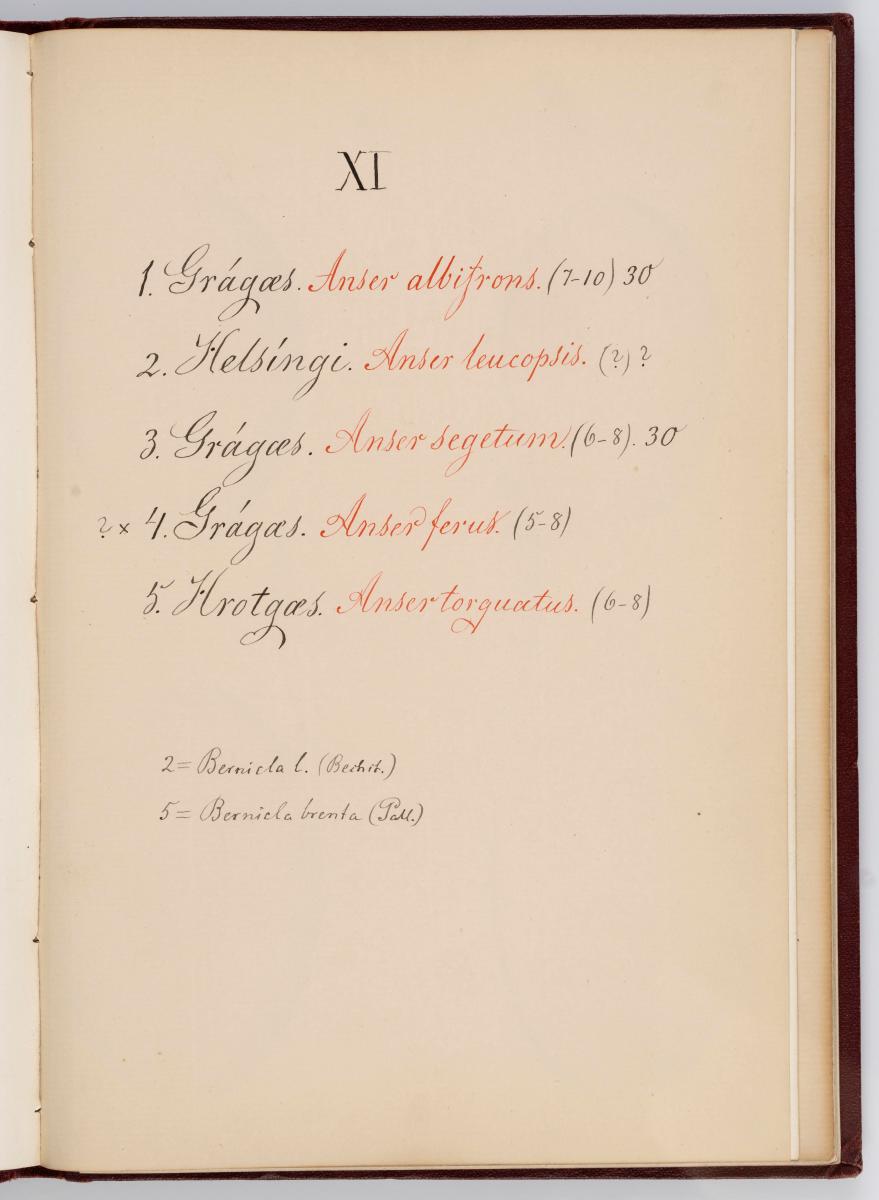 XI
1. Grágæs. Anser albifrons. (7-10) 30
2. Helsíngi. Anser leucopsis. (?) ?
3. Grágæs. Anser segetum. (6-8). 30
? × 4. Grágæs. Anser ferus. (5-8)
5. Hrotgæs. Anser torquatus. (6-8)
2 = Bernicla l. (Bechst.)
5 = Bernicla brenta (Pall.)